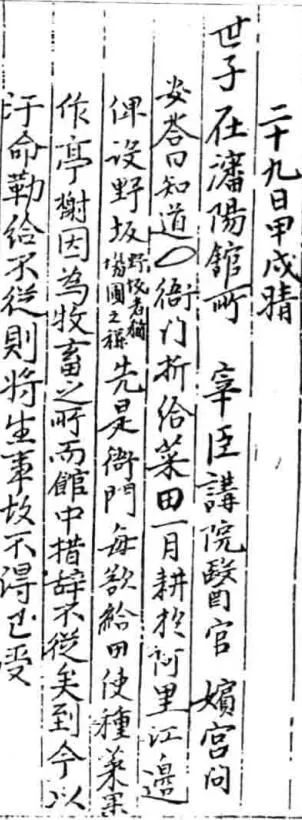 二十九日甲戌晴
世子在瀋陽館所 宰臣講院醫官 嬪宮問
安答曰知道○衙门折給菜田一日耕於阿里江邊
俾設野坂野坂者猶場圃之稱先是衙門每欲給田使種菜果
作亭榭因為牧畜之所而館中措辞不從矣到今以
汗命勒給不從則将生事故不得已受